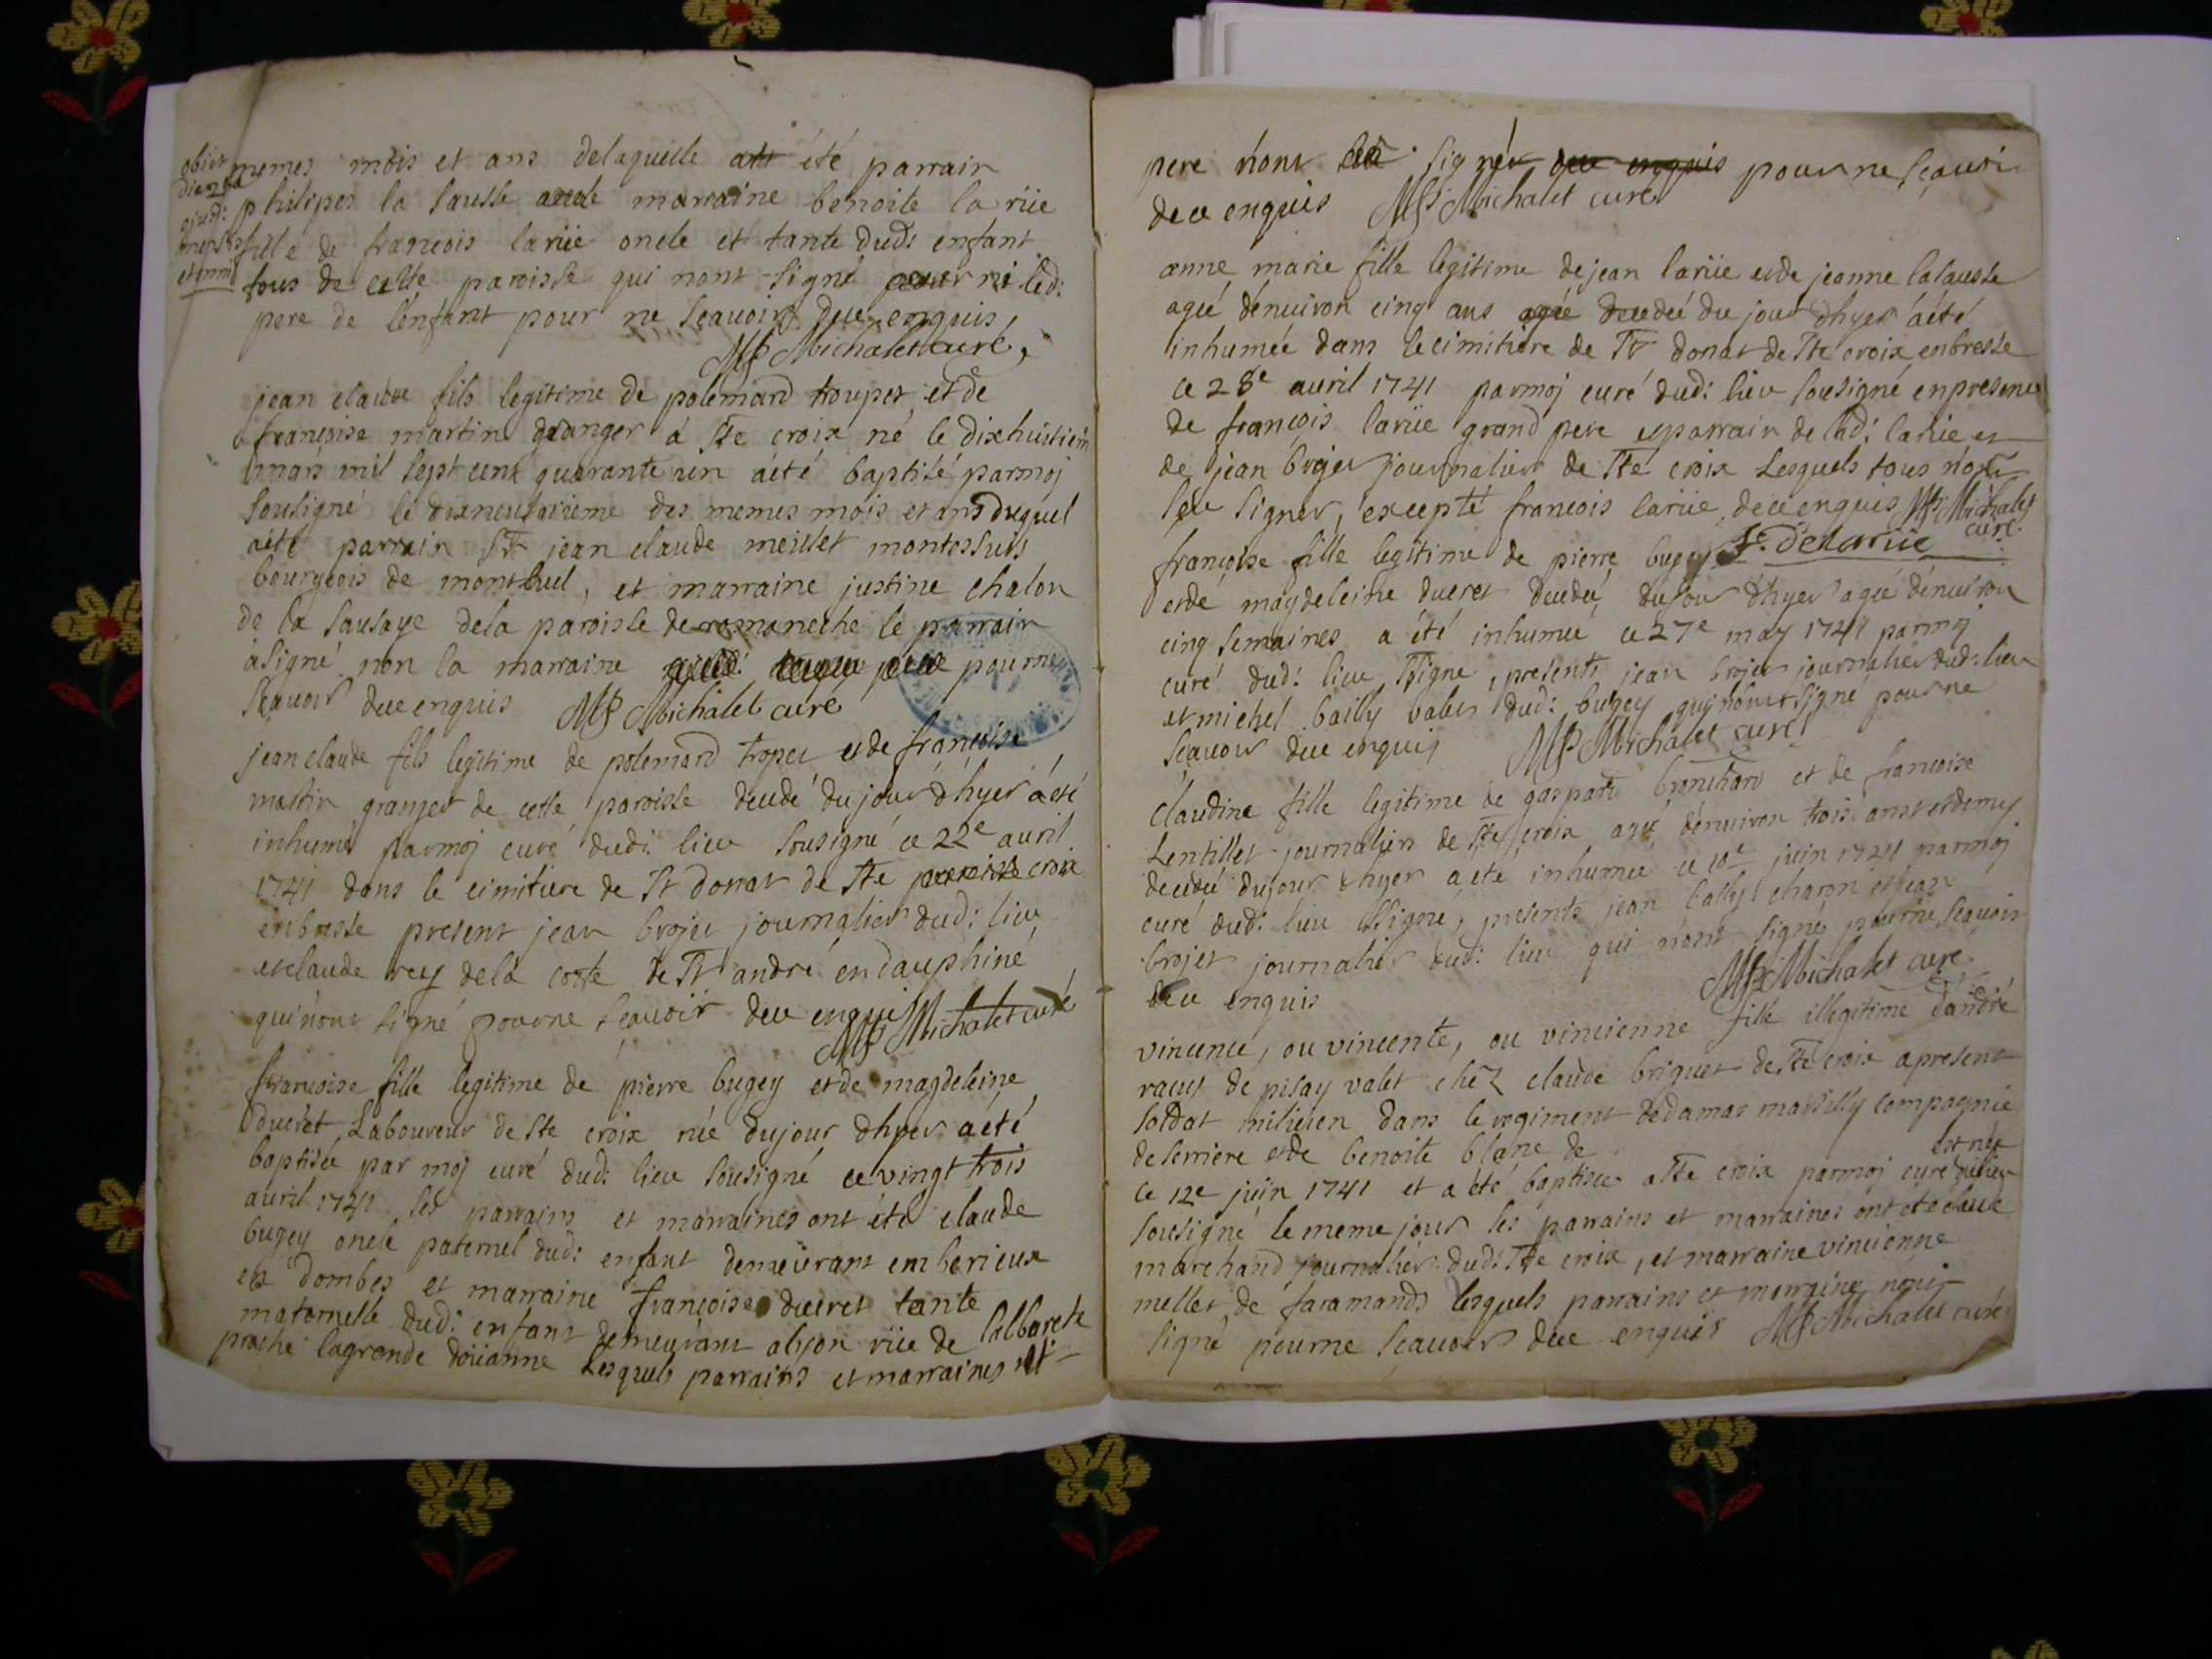 obiit
die
ejusd:
mensis
et anni
memes mois et ans delaquelle été parrain
philipes la sausse marraine benoite la rüe
fille de francois larüe oncle et tante dud: enfant
tous de cette paroisse qui nont signé ni led:
pere de lénfant pour ne scauoir due enquis,
Michalet curé,
jean claude fils legitime de polemard troupet, et de
francoise martin granger á Ste croix né le dixhuitiem
mars mil sept cent quarante un áété baptisé parmoj
sousigné le dixneuf des memes mois et ans duquel
aété parrain Sr jean claude meillet montessuis
bourgeois de montluel, et marraine justine chalon
de la sausaye dela paroisse de romaneche le parrain
asigné non la marraine pourne
sçauoir due enquis Michalet curé
jean claude fils legitime de polemard tropet et de françoise
martin granger de cette paroisse decedé dujour dhyer áété
inhumé parmoj curé dud: lieu sousigné ce 22e auril
1741 dans le cimitiere de St donat de Ste croix
enbresse present jean brojer journalier dud: lieu
et claude rey dela coste de St andré en dauphiné
qui nont signé pourne scauoir due enquis Michalet curé
francoise fille legitime de pierre bugey et de magdeleine
ducret Laboureur de Ste croix née dujour dhyer aété
baptisée par moj curé dud: lieu sousigné ce vingt trois
auril 1741 les parrains et marraines ont été claude
bugey oncle paternel dud: enfant demeurant emberieux
en dombes et marraine françoise ducret tante
maternelle dud: enfant demeurant alyon rüe de lalbarete
proche lagrande doüanne Lesquels parrains et marraines
pere nont signér pourne sçauoir
dece enquis Michalet curé
anne marie fille legitime dejean larüe et de jeanne lasausse
agée dénuiron cinq ans decedée du jour dhyer áété
inhumée dans lecimitiere de St donat de Ste croix enbresse
ce 28e auril 1741 parmoj curé dud: lieu sousigné enpresence
de françois larüe grand pere et parrain de lad: larüe et
de jean brojer journalier de Ste croix Lesquels tous nont
sceu signer, excepté francois larüe, dece enquis Michalet
curé
françoise fille legitime de pierre bugey f. Delarüe
et de magdeleine ducret decedée dujour dhyer agée dénuiron
cinq semaines a été inhumée ce 27e may 1741 parmoj
curé dud: lieu signé, presents jean brojer journalier dud: lieu
et michel bailly valet dud: bugey qui nont signé pourne
scauoir due enquis Michalet curé
Claudine fille legitime de gaspard et de francoise
Lentillet journalier de Ste croix agée dénuiron trois ans et demy
decedée dujour dhyer aété inhumée ce 10e juin 1741 parmoj
curé dud: lieu signé, presents jean bailly charon et jean
brojer journalier dud: lieu qui nont signé pourne sçauoir
dece enquis Michalet curé
vincence, ou vincente, ou vincienne fille illegitime dandré
de pisay valet chéz claude briquet de Ste croix apresent
soldat milicien dans le regiment dedamas marsilly compagnie
deferriere et de benoite blanc de est née
ce 12e juin 1741 et a été baptisée a Ste croix parmoj curé dulieu
sousigné le meme jour les parrains et marraines ont eté claude
marchand journalier dud: Ste croix, et marraine vincienne
mellet de faramands lesquels parrains et marraine nont
signé pourne scauoir due enquis Michalet curé